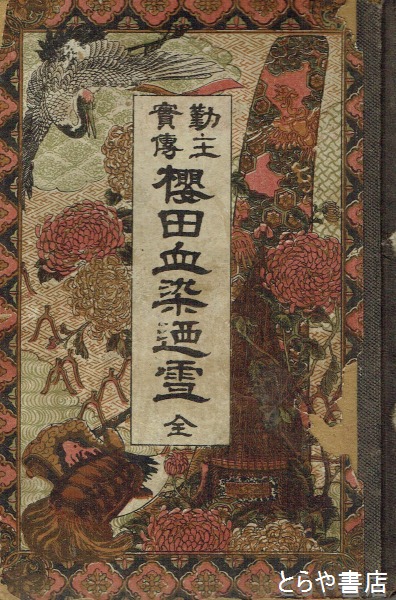 勤王
實傳
櫻田血染迺雪
全
とらや書店